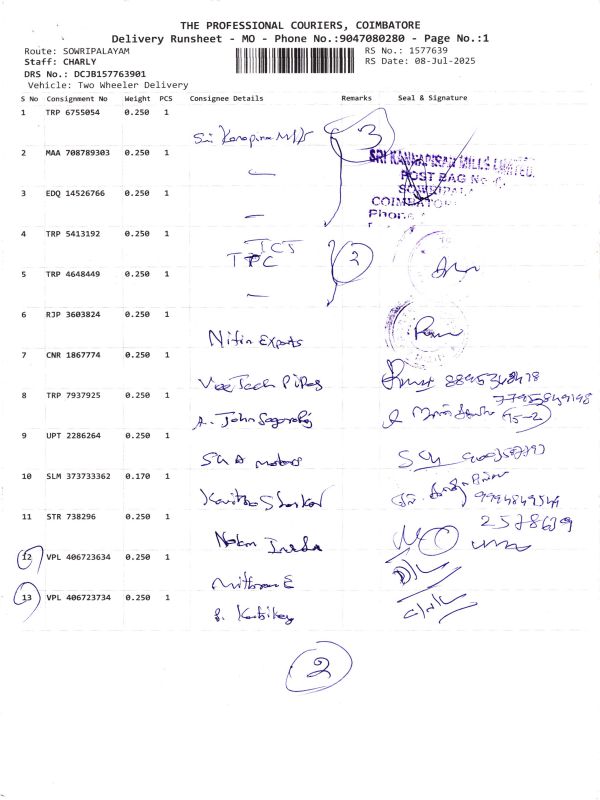 THE PROFESSIONAL COURIERS, COIMBATORE
Delivery Runsheet - MO - Phone No.:9047080280 - Page No.:1
Route: SOWRIPALAYAM
RS No.: 1577639
Staff: CHARLY
RS Date: 08-Jul-2025
DRS No.: DCJB157763901
Vehicle: Two Wheeler Delivery
S No Consignment No Weight PCS Consignee Details Remarks Seal & Signature
1 TRP 6755054 0.250 1
Sri 3
2 MAA 708789303 0.250 1
SRI KANNAPIRAN MILLS LIMITED.
POST BAG No
3 EDQ 14526766 0.250 1
SOWRIPAL
COIMBATO
Phone
4 TRP 5413192 0.250 1
TCT
TPC 2
5 TRP 4648449 0.250 1
6 RJP 3603824 0.250 1
Nitin Exports
7 CNR 1867774 0.250 1
VeeTech Pipes
8 TRP 7937925 0.250 1
A. John
9 UPT 2286264 0.250 1
motors
10 SLM 373733362 0.170 1
11 STR 738296 0.250 1
2578639
12 VPL 406723634 0.250 1
Mithran E
D/L
13 VPL 406723734 0.250 1
2